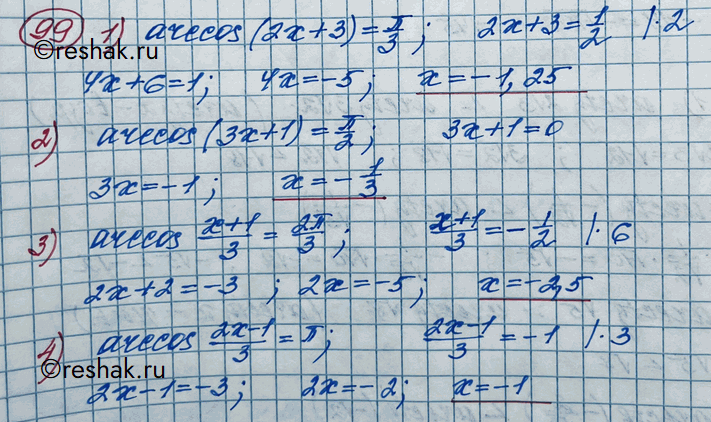 99 1) arccos(2x+3)=π/3; 2x+3=1/2 |·2
©reshak.ru
4x+6=1; 4x=-5; x=-1,25
2) arccos(3x+1)=π/2; 3x+1=0
3x=-1; x=-1/3
3) arccos (x+1)/3=2π/3; (x+1)/3=-1/2 |·6
2x+2=-3; 2x=-5; x=-2,5
4) arccos (2x-1)/3=π; (2x-1)/3=-1 |·3
©reshak.ru
2x-1=-3; 2x=-2; x=-1